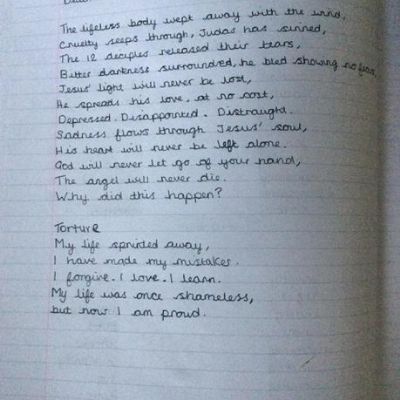 The lifeless body wept away with the wind,
Cruelty seeps through, Judas has sinned,
The 12 deciples released their tears,
Bitter darkness surrounded, he bled showing no fear,
Jesus' light will never be lost,
He spreads his love, at no cost,
Depressed. Disappointed. Distraught.
Sadness flows through Jesus' soul,
His heart will never be left alone.
God will never let go of your hand,
The angel will never die.
Why did this happen?
Torture
My life sprinted away,
I have made my mistakes.
I forgive. I love. I learn.
My life was once shameless,
but now I am proud.